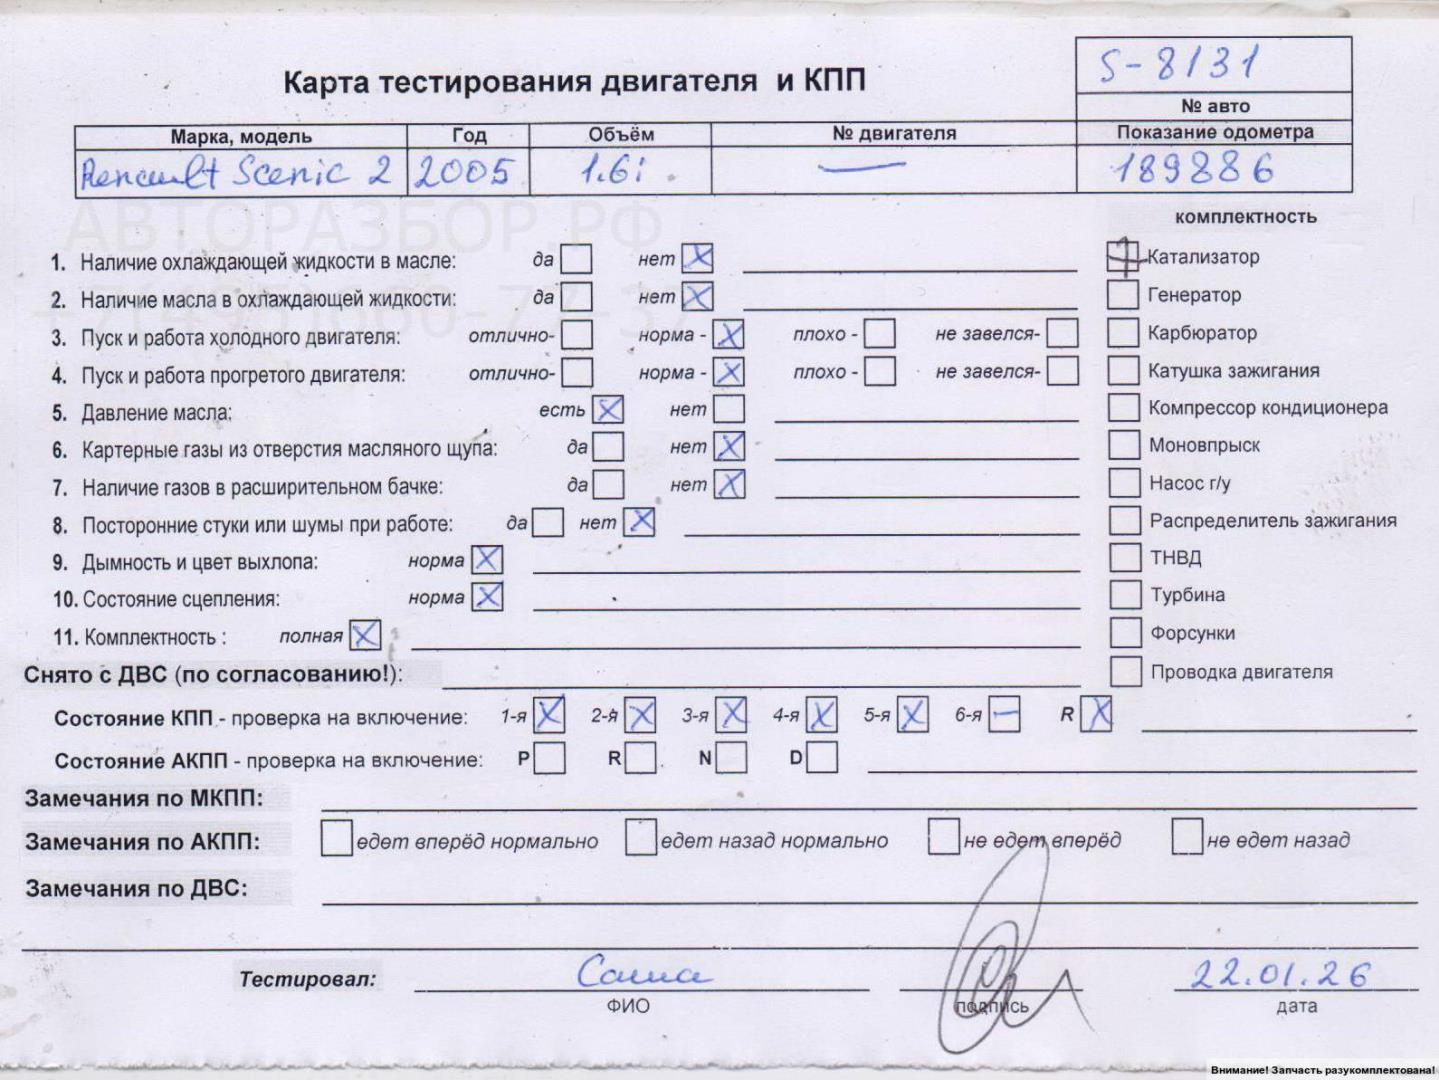 S-8131
Карта тестирования двигателя и КПП
№ авто
Марка, модель Год Объём № двигателя Показание одометра
Renault Scenic 2 2005 1.6i — 189886
АВТОРАЗБОР.РФ
комплектность
1. Наличие охлаждающей жидкости в масле: да нет X Катализатор
+7(495)660-77-37
2. Наличие масла в охлаждающей жидкости: да нет X Генератор
3. Пуск и работа холодного двигателя: отлично- норма - X плохо - не завелся- Карбюратор
4. Пуск и работа прогретого двигателя: отлично- норма - X плохо - не завелся- Катушка зажигания
5. Давление масла: есть X нет Компрессор кондиционера
6. Картерные газы из отверстия масляного щупа: да нет X Моновпрыск
7. Наличие газов в расширительном бачке: да нет X Насос г/у
8. Посторонние стуки или шумы при работе: да нет X Распределитель зажигания
9. Дымность и цвет выхлопа: норма X ТНВД
10. Состояние сцепления: норма X Турбина
11. Комплектность : полная X Форсунки
Снято с ДВС (по согласованию!): Проводка двигателя
Состояние КПП - проверка на включение: 1-я X 2-я X 3-я X 4-я X 5-я X 6-я — R X
Состояние АКПП - проверка на включение: P R N D
Замечания по МКПП:
Замечания по АКПП: едет вперёд нормально едет назад нормально не едет вперёд не едет назад
Замечания по ДВС:
Тестировал: Саша 22.01.26
ФИО подпись дата
Внимание! Запчасть разукомплектована!